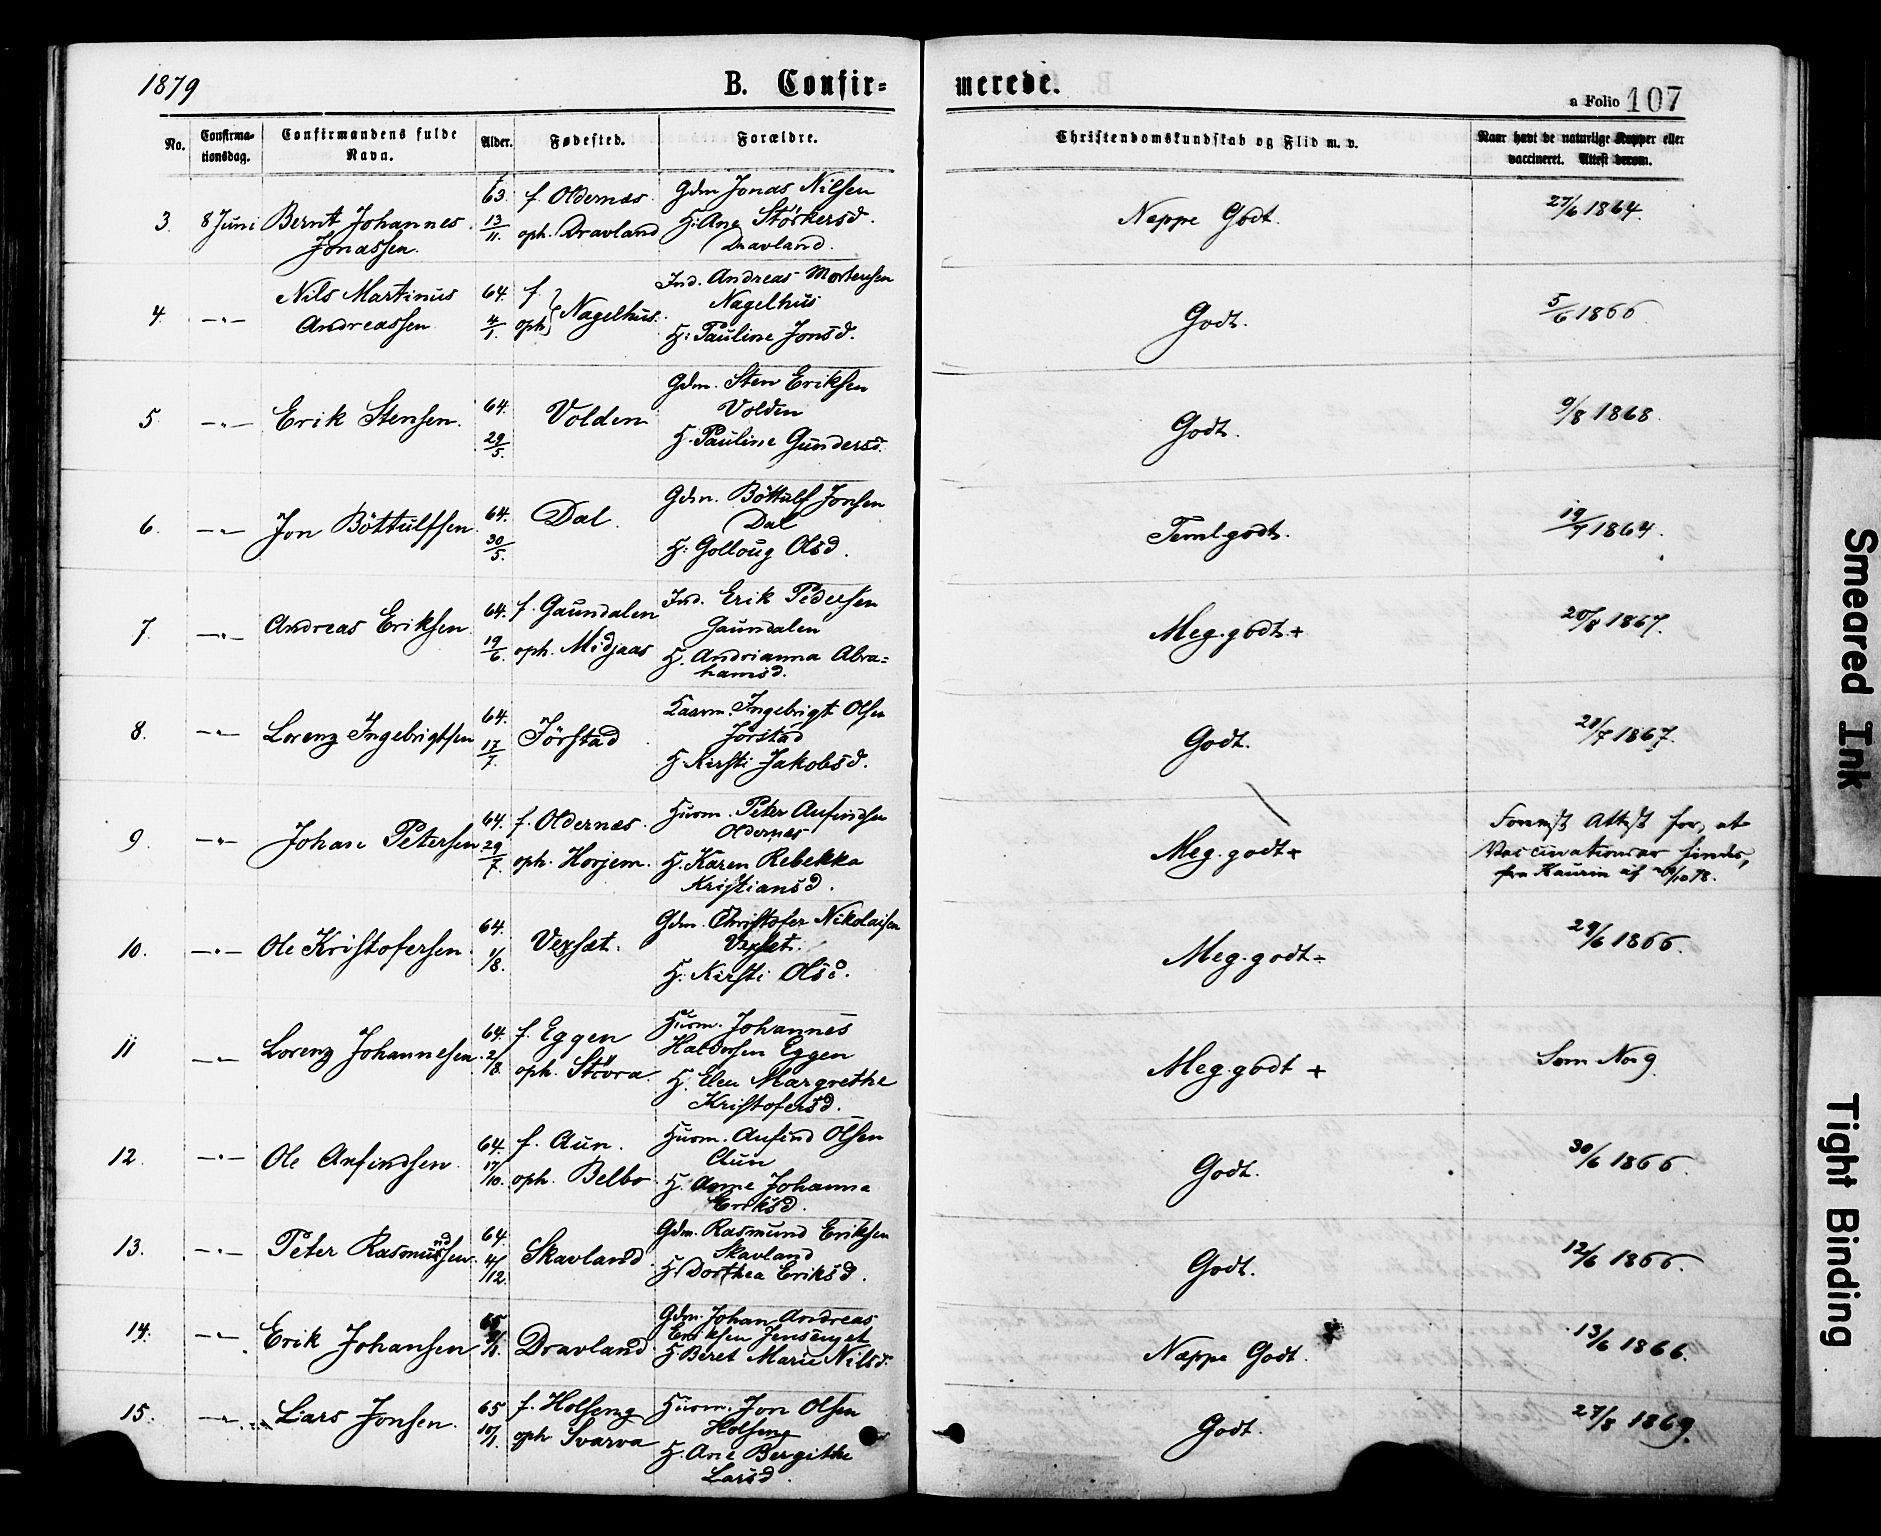 1879
B. Confir- merede.
a Folio 107
No. Confirma-tionsdag. Confirmandens fulde Navn. Alder. Fødested. Forældre. Christendomskundskab og Flid m. v. Naar havt de naturlige Kopper eller vaccineret. Attest derom.
3. 8 Juni Bernt Johannes Jonassen. 63. 13/11. f. Oldernæs oph. Dravland Gdm Jonas Nilsen H: Ane Störkersd. Dravland. Neppe Godt. 27/6 1864.
4. -"- Nils Martinus Andreassen 64. 4/1. f. oph. Nagelhus. Ind. Andreas Mortensen Nagelhus H: Pauline Jonsd. Godt. 5/6 1866
5. -"- Erik Stensen. 64. 29/5. Volden Gdm. Sten Eriksen Volden H. Pauline Gundersd. Godt. 9/8 1868.
6. -"- Jon Böttulfsen 64. 30/5. Dal. Gdm. Böttulf Jonsen Dal H: Golloug Olsd. Teml. godt. 19/7 1864.
7. -"- Andreas Eriksen 64. 19/6. f. Gaundalen oph. Midjaas Ind. Erik Pedersen Gaundalen H. Andrianna Abra=hamsd. Meg. godt.+ 20/8 1867.
8. -"- Lorenz Ingebrigtsen 64. 17/7. Jörstad Ingebrigt Olsen Jörstad H Kirsti Jakobsd. Godt. 1867.
9. -"- Johan Petersen 64. 29/7. f. Oldernæs oph. Horjem. Husm. Peter Anfindsen Oldernæs H. Karen Rebekka Kristiansd. Meg. godt+ Forevist Attest for, at Vaccinationsar findes, fra Kaurin af
10. -"- Ole Kristofersen. 64. 1/8. Vexsæt. Gdm. Christofer Nikolaisen Vexsæt. H. Kirsti Olsd. Meg. godt÷ 29/6 1866.
11 -"- Lorenz Johannesen 64. 2/8. f. Eggen oph. Stövra. Husm. Johannes Haldorsen Eggen H. Elen Margrethe Kristofersd. Meg. godt + Som No 9
12. -"- Ole Anfindsen. 64. 17/10. f. Aun. oph. Belbo Husm. Anfind Olsen Aun H. Anne Johanna Eriksd. Godt. 30/6 1866.
13. -"- Peter Rasmundsen. 64. 4/12. Skavland Gdm. Rasmund Eriksen Skavland H. Dorthea Eriksd. Godt. 12/6 1866.
14. -"- Erik Johansen 65 Dravland Gdm. Johan Andreas Eriksen H. Beret Marie Nilsd. Neppe Godt. 13/6 1866.
15. -"- Lars Jonsen. 65 10/1. f. Holseng oph Svarva Husm. Jon Olsen Holseng H. Ane Bergithe Larsd. Godt. 27/8 1869.
Smeared Ink
Tight Binding